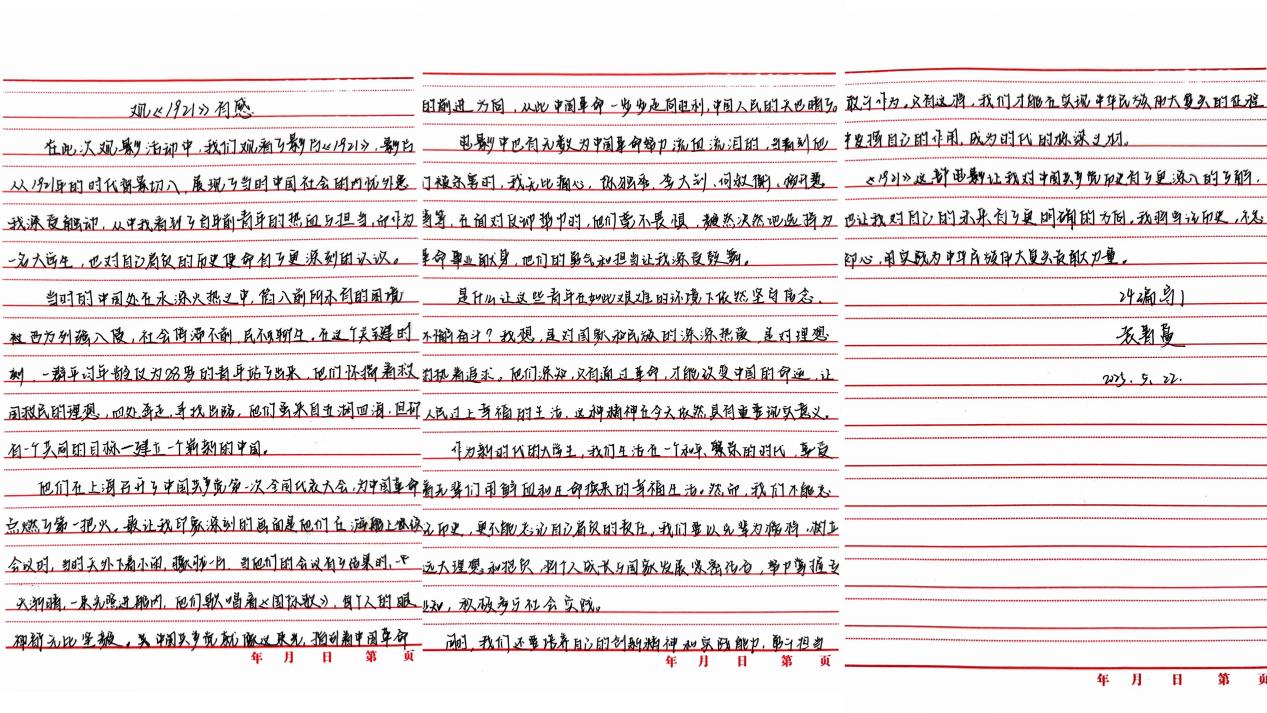 观《1921》有感
在此次观影活动中，我们观看了影片《1921》，影片
从1921年的时代背景切入，展现了当时中国社会的内忧外患
我深受触动，从中我看到了百年前青年的热血与担当，而作为
一名大学生，也对自己肩负的历史使命有了更深刻的认识。
当时的中国处在水深火热之中，陷入前所未有的困境
被西方列强入侵，社会停滞不前，民不聊生。在这个关键的
刻，一群平均年龄仅为28岁的青年站了出来，他们怀揣着救
国救民的理想，四处奔走，寻找出路，他们虽来自五湖四海，但都
有一个共同的目标—建立一个崭新的中国。
他们在上海召开了中国共产党第一次全国代表大会，为中国革命
点燃了第一把火。最让我印象深刻的画面是他们在游船上
会议时，当时天外下着小雨，朦胧一片，当他们的会议有了结果时，
天渐晴，一束光照进船内，他们歌唱着《国际歌》，每个人的眼
神都无比坚毅。中国共产党就像这束光，指引着中国革命
年 月 日 第 页
的前进方向，从此中国革命一步步走向胜利，中国人民的天也晴了。
电影中也有无数为中国革命努力流血流泪的，当看到他
们被杀害时，我无比痛心，陈独秀、李大钊、何叔衡、杨开慧
等等，在面对反动势力时，他们毫不畏惧，毅然决然地选择为
革命事业献身，他们的勇气和担当让我深受鼓舞。
是什么让这些青年在如此艰难的环境下依然坚守信念、
不懈奋斗？我想，是对国家和民族的深深热爱，是对理想
的执着追求。他们深知，只有通过革命，才能改变中国的命运，让
人民过上幸福的生活，这种精神在今天依然具有重要现实意义。
作为新时代的大学生，我们生活在一个和平、繁荣的时代，享受
着先辈们用鲜血和生命换来的幸福生活。然而，我们不能忘
记历史，更不能忘记自己肩负的责任。我们要以先辈为榜样，树立
远大理想和抱负，将个人成长与国家发展紧密结合，努力掌握专
业知，积极参与社会实践。
同时，我们还要培养自己的创新精神和实践能力，勇于担当
年 月 日 第 页
敢于作为。只有这样，我们才能在实现中华民族伟大复兴的征程
中发挥自己的作用，成为时代的
《1921》这部电影让我对中国共产党历史有了更深入的了解，
也让我对自己的未来有了更明确的方向。我将牢记历史，不忘
初心，用实践为中华民族伟大复兴贡献力量。
2023.5.22.
年 月 日 第 页